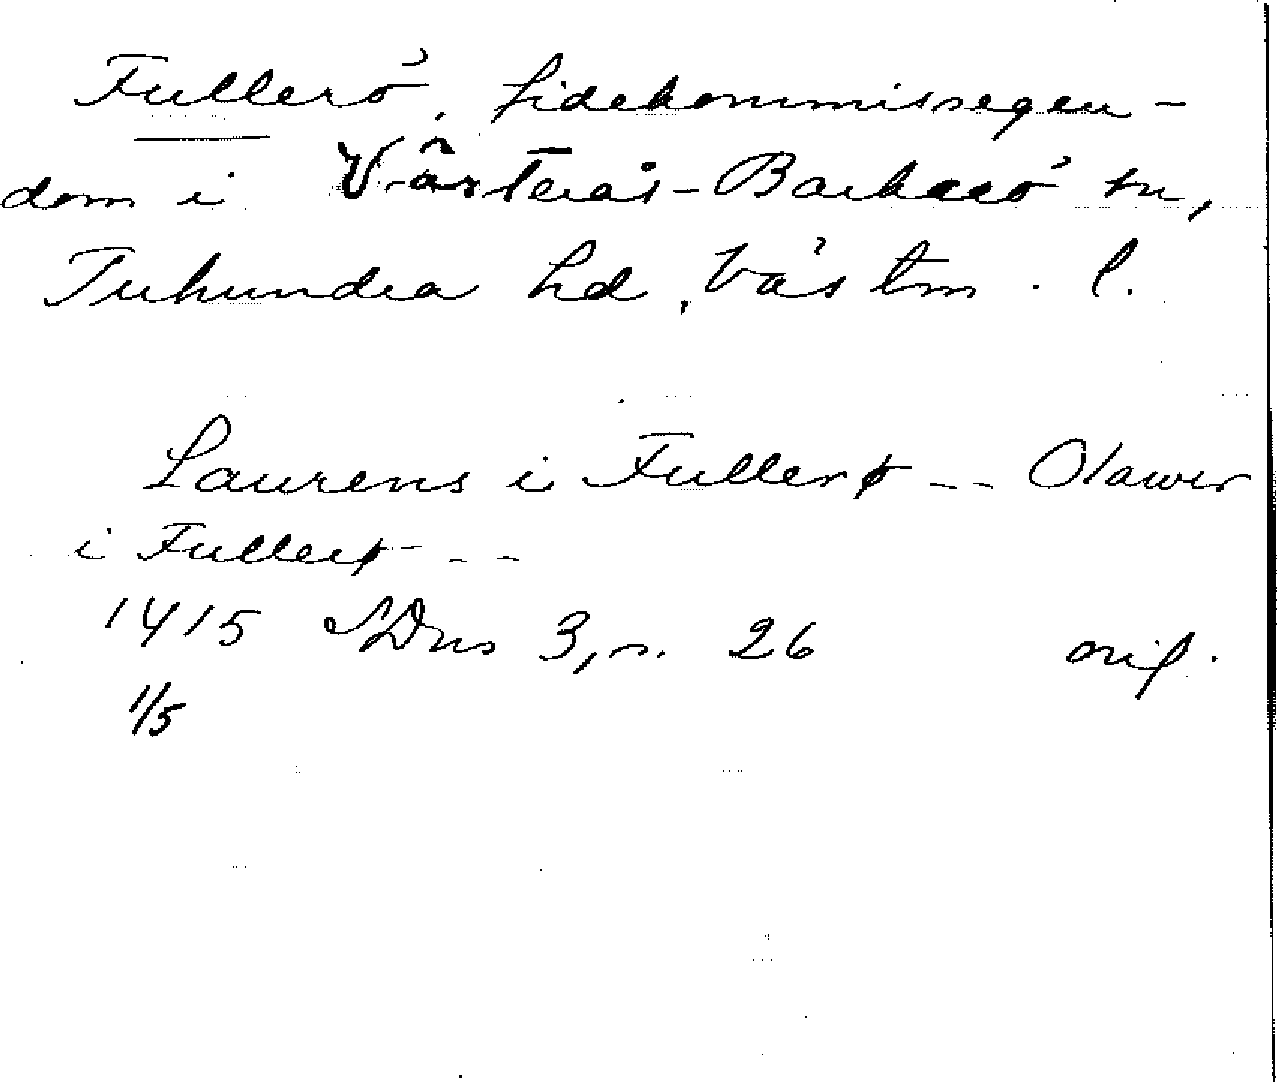 Fullerö, fidekommissegen-
dom i Västerås-Barkarö sn,
Tuhundra hd, Västm. l.
Laurens i Fullerø -- Olawer
i Fullerø ---
1415 SDns 3, s. 26 orig.
1/5